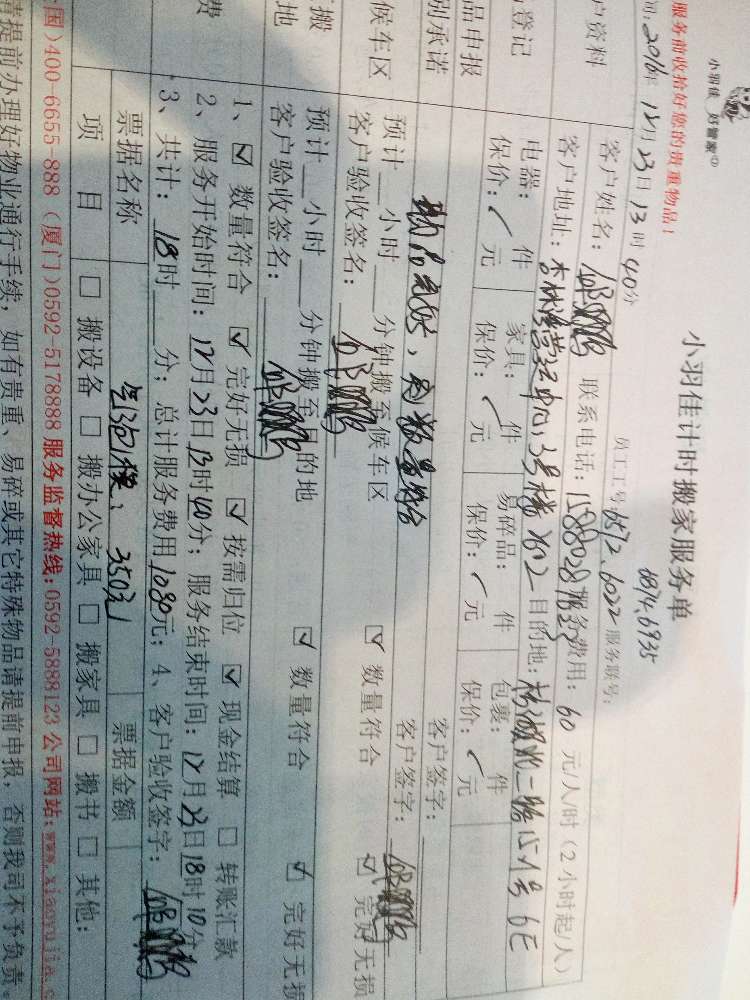 小羽佳 好管家
小羽佳计时搬家服务单
服务前收拾好您的贵重物品!
4874.6935
间: 2016年 12月 23日 13时 40分
员工工号: 6572、6022 服务联号:
户资料
客户姓名: 联系电话: 服务费用: 60 元/人/时 (2小时起/人)
客户地址: 杏林湾营运中心, 3号楼 目的地:
登记
电器: 件 家具: 件 易碎品: 件 包裹: 件
保价: / 元 保价: / 元 保价: / 元 保价: / 元
品申报
客户签字:
别承诺
物品完好, 数量符合
客户签字:
候车区
预计 小时 分钟搬至候车区
客户验收签名: ☑ 数量符合 ☑ 完好无损
搬
地
预计 小时 分钟搬至目的地
客户验收签名: ☑ 数量符合 ☑ 完好无损
费
1、☑ 数量符合 ☑ 完好无损 ☑ 按需归位 ☑ 现金结算 ☐ 转账汇款
2、服务开始时间: 12月23日13时40分; 服务结束时间: 12月23日18时10分
3、共计: 18时 分; 总计服务费用1080元; 4、客户验收签字:
票据名称 气泡膜、350元 票据金额
项 目 ☐ 搬设备 ☐ 搬办公家具 ☐ 搬家具 ☐ 搬书 ☐ 其他:
国)400-6655-888 (厦门)0592-5178888 服务监督热线: 0592-5888123 公司网站: www.xiaoyujia.c
请提前办理好物业通行手续, 如有贵重、易碎或其它特殊物品请提前申报, 否则我司不予负责。